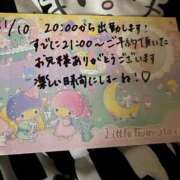 1/10 20:00から出勤します!
すでに21:00〜ご予約頂いた
お兄様ありがとうございます
楽しい時間にしよーね!♡
Little Twin Stars